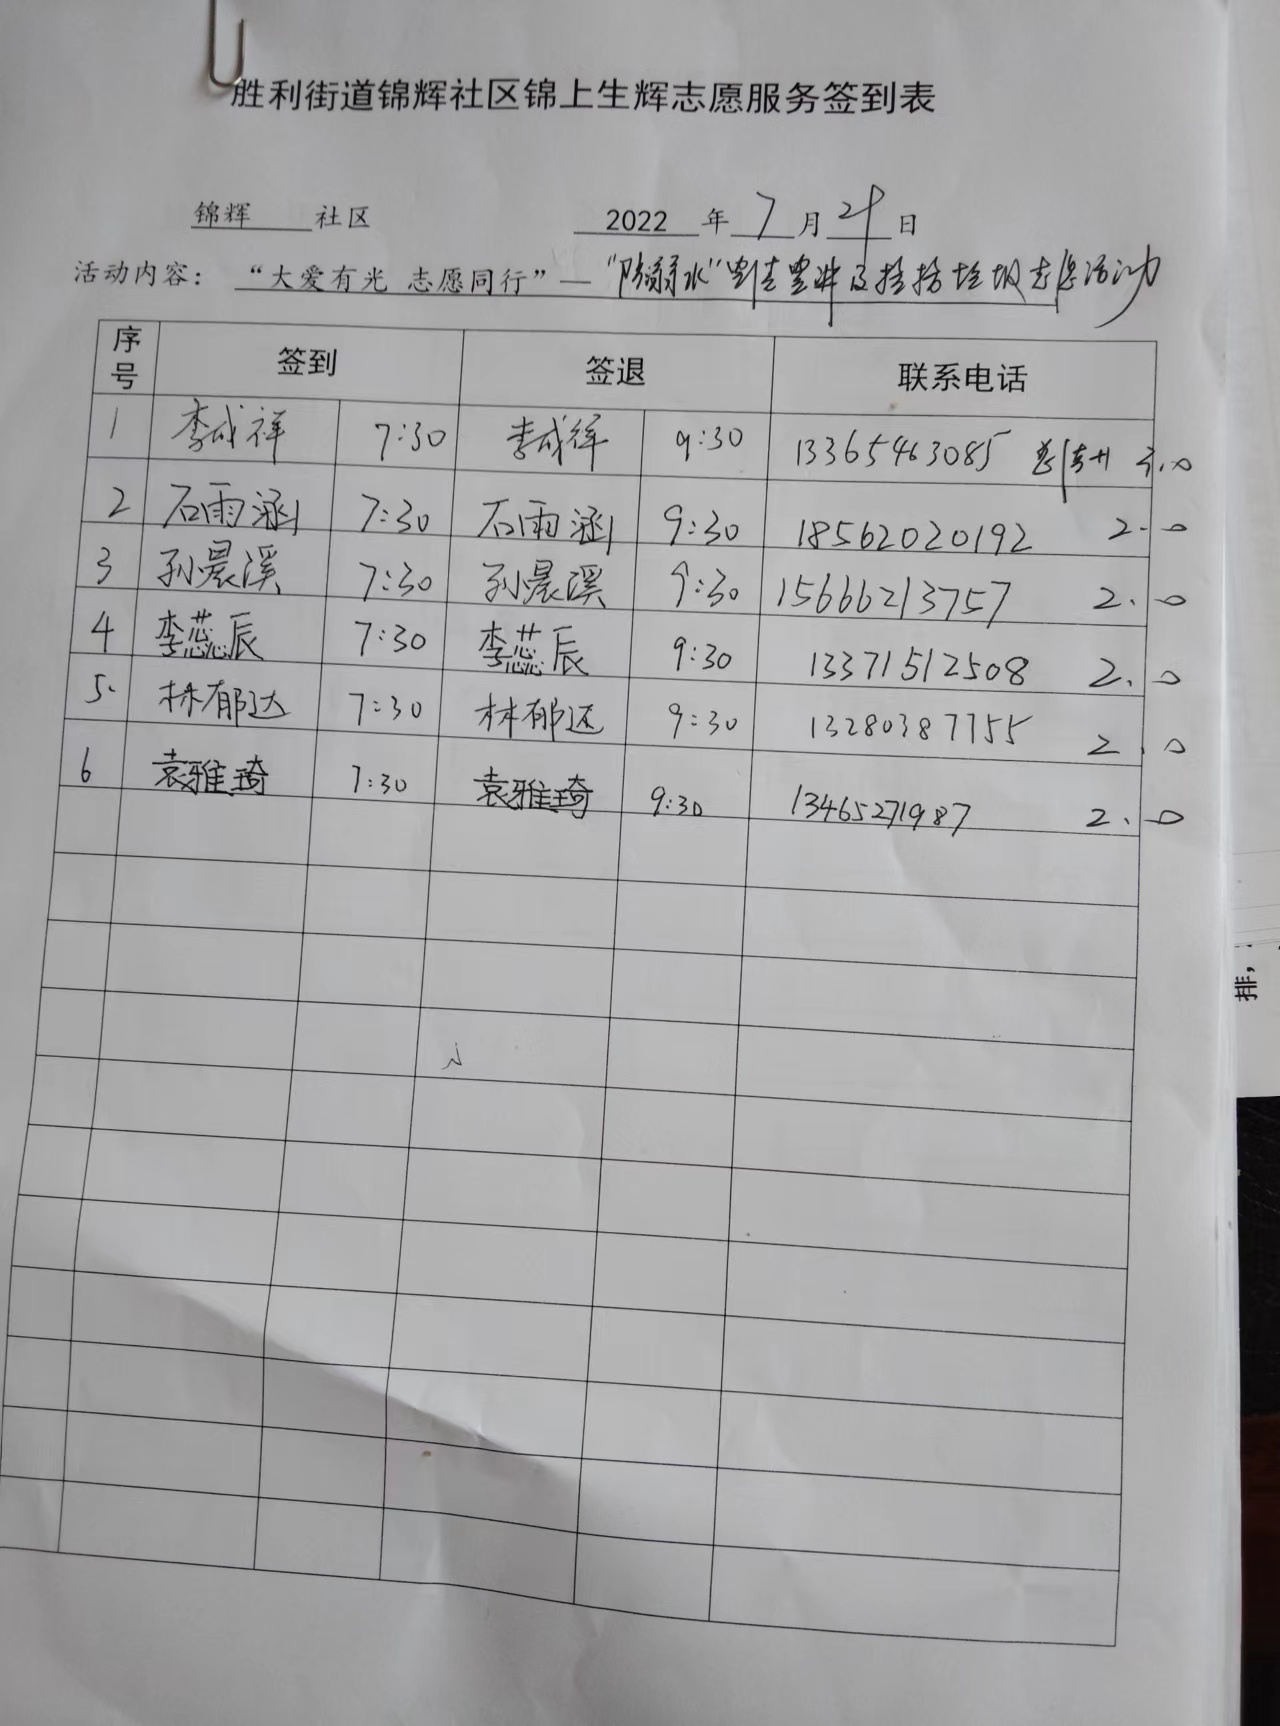 胜利街道锦辉社区锦上生辉志愿服务签到表
锦辉 社区 2022 年 7 月 21 日
活动内容：“大爱有光 志愿同行”— “防溺水” 及捡拾垃圾志愿活动
序号 签到 签退 联系电话
1 李成祥 7:30 李成祥 9:30 13365463085
2 石雨涵 7:30 石雨涵 9:30 18562020192 2.0
3 孙晨溪 7:30 孙晨溪 9:30 15666213757 2.0
4 李蕊辰 7:30 李蕊辰 9:30 13371512508 2.0
5. 林郁达 7:30 林郁达 9:30 13280387755 2.0
6 袁雅琦 7:30 袁雅琦 9:30 13465271987 2.0
排，